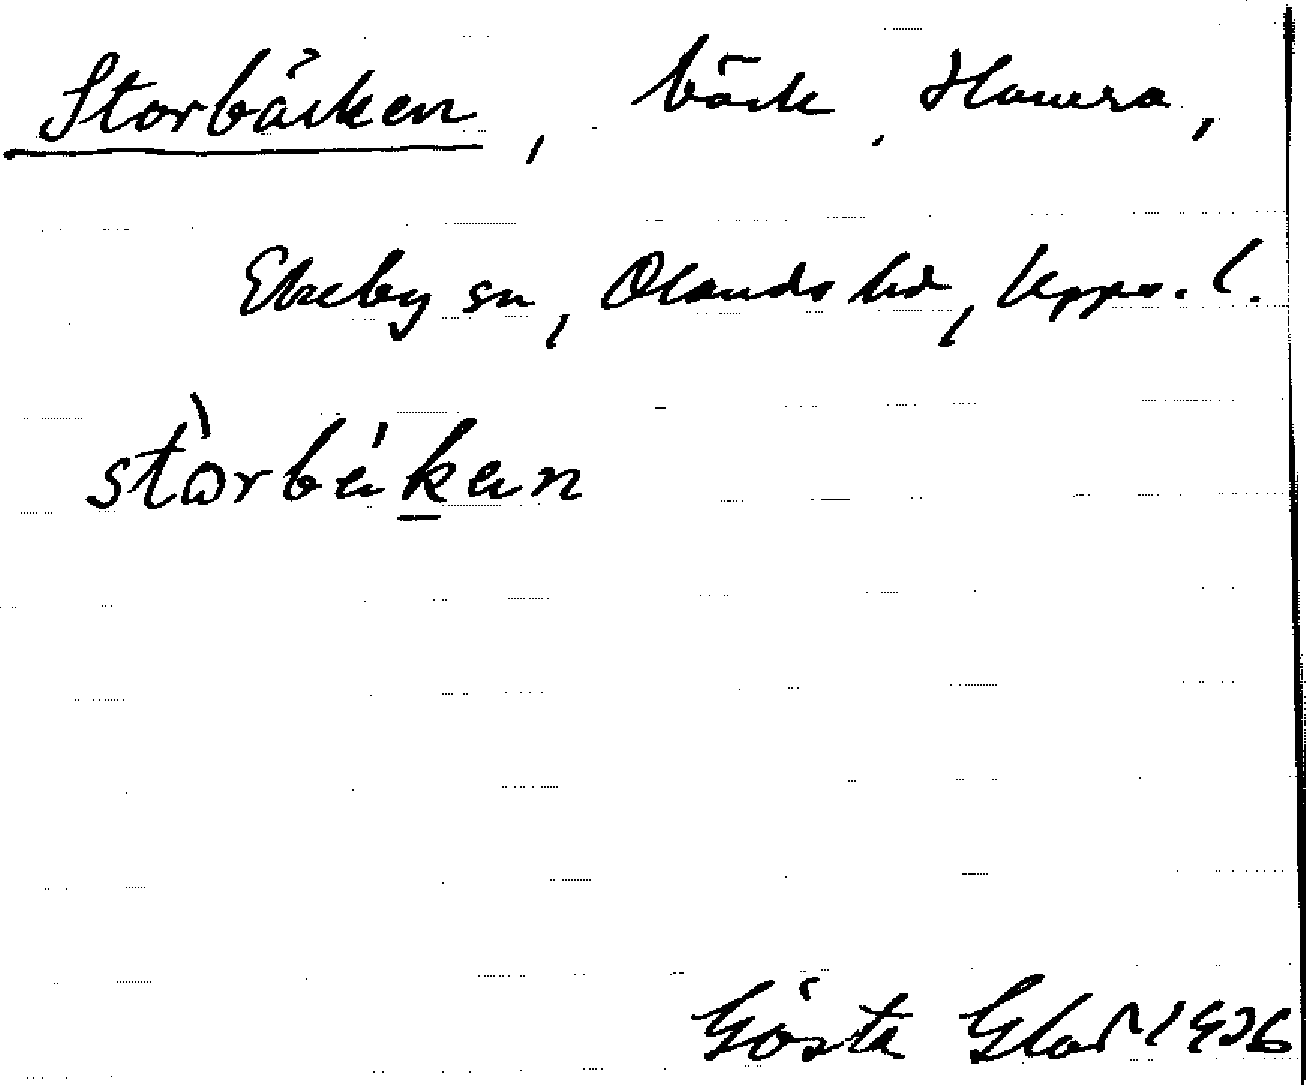 Storbäcken, bäck, Hamra,
Ekeby sn, Olands hd, Upps. l.
stòrbèkan
Gösta Glas 1926